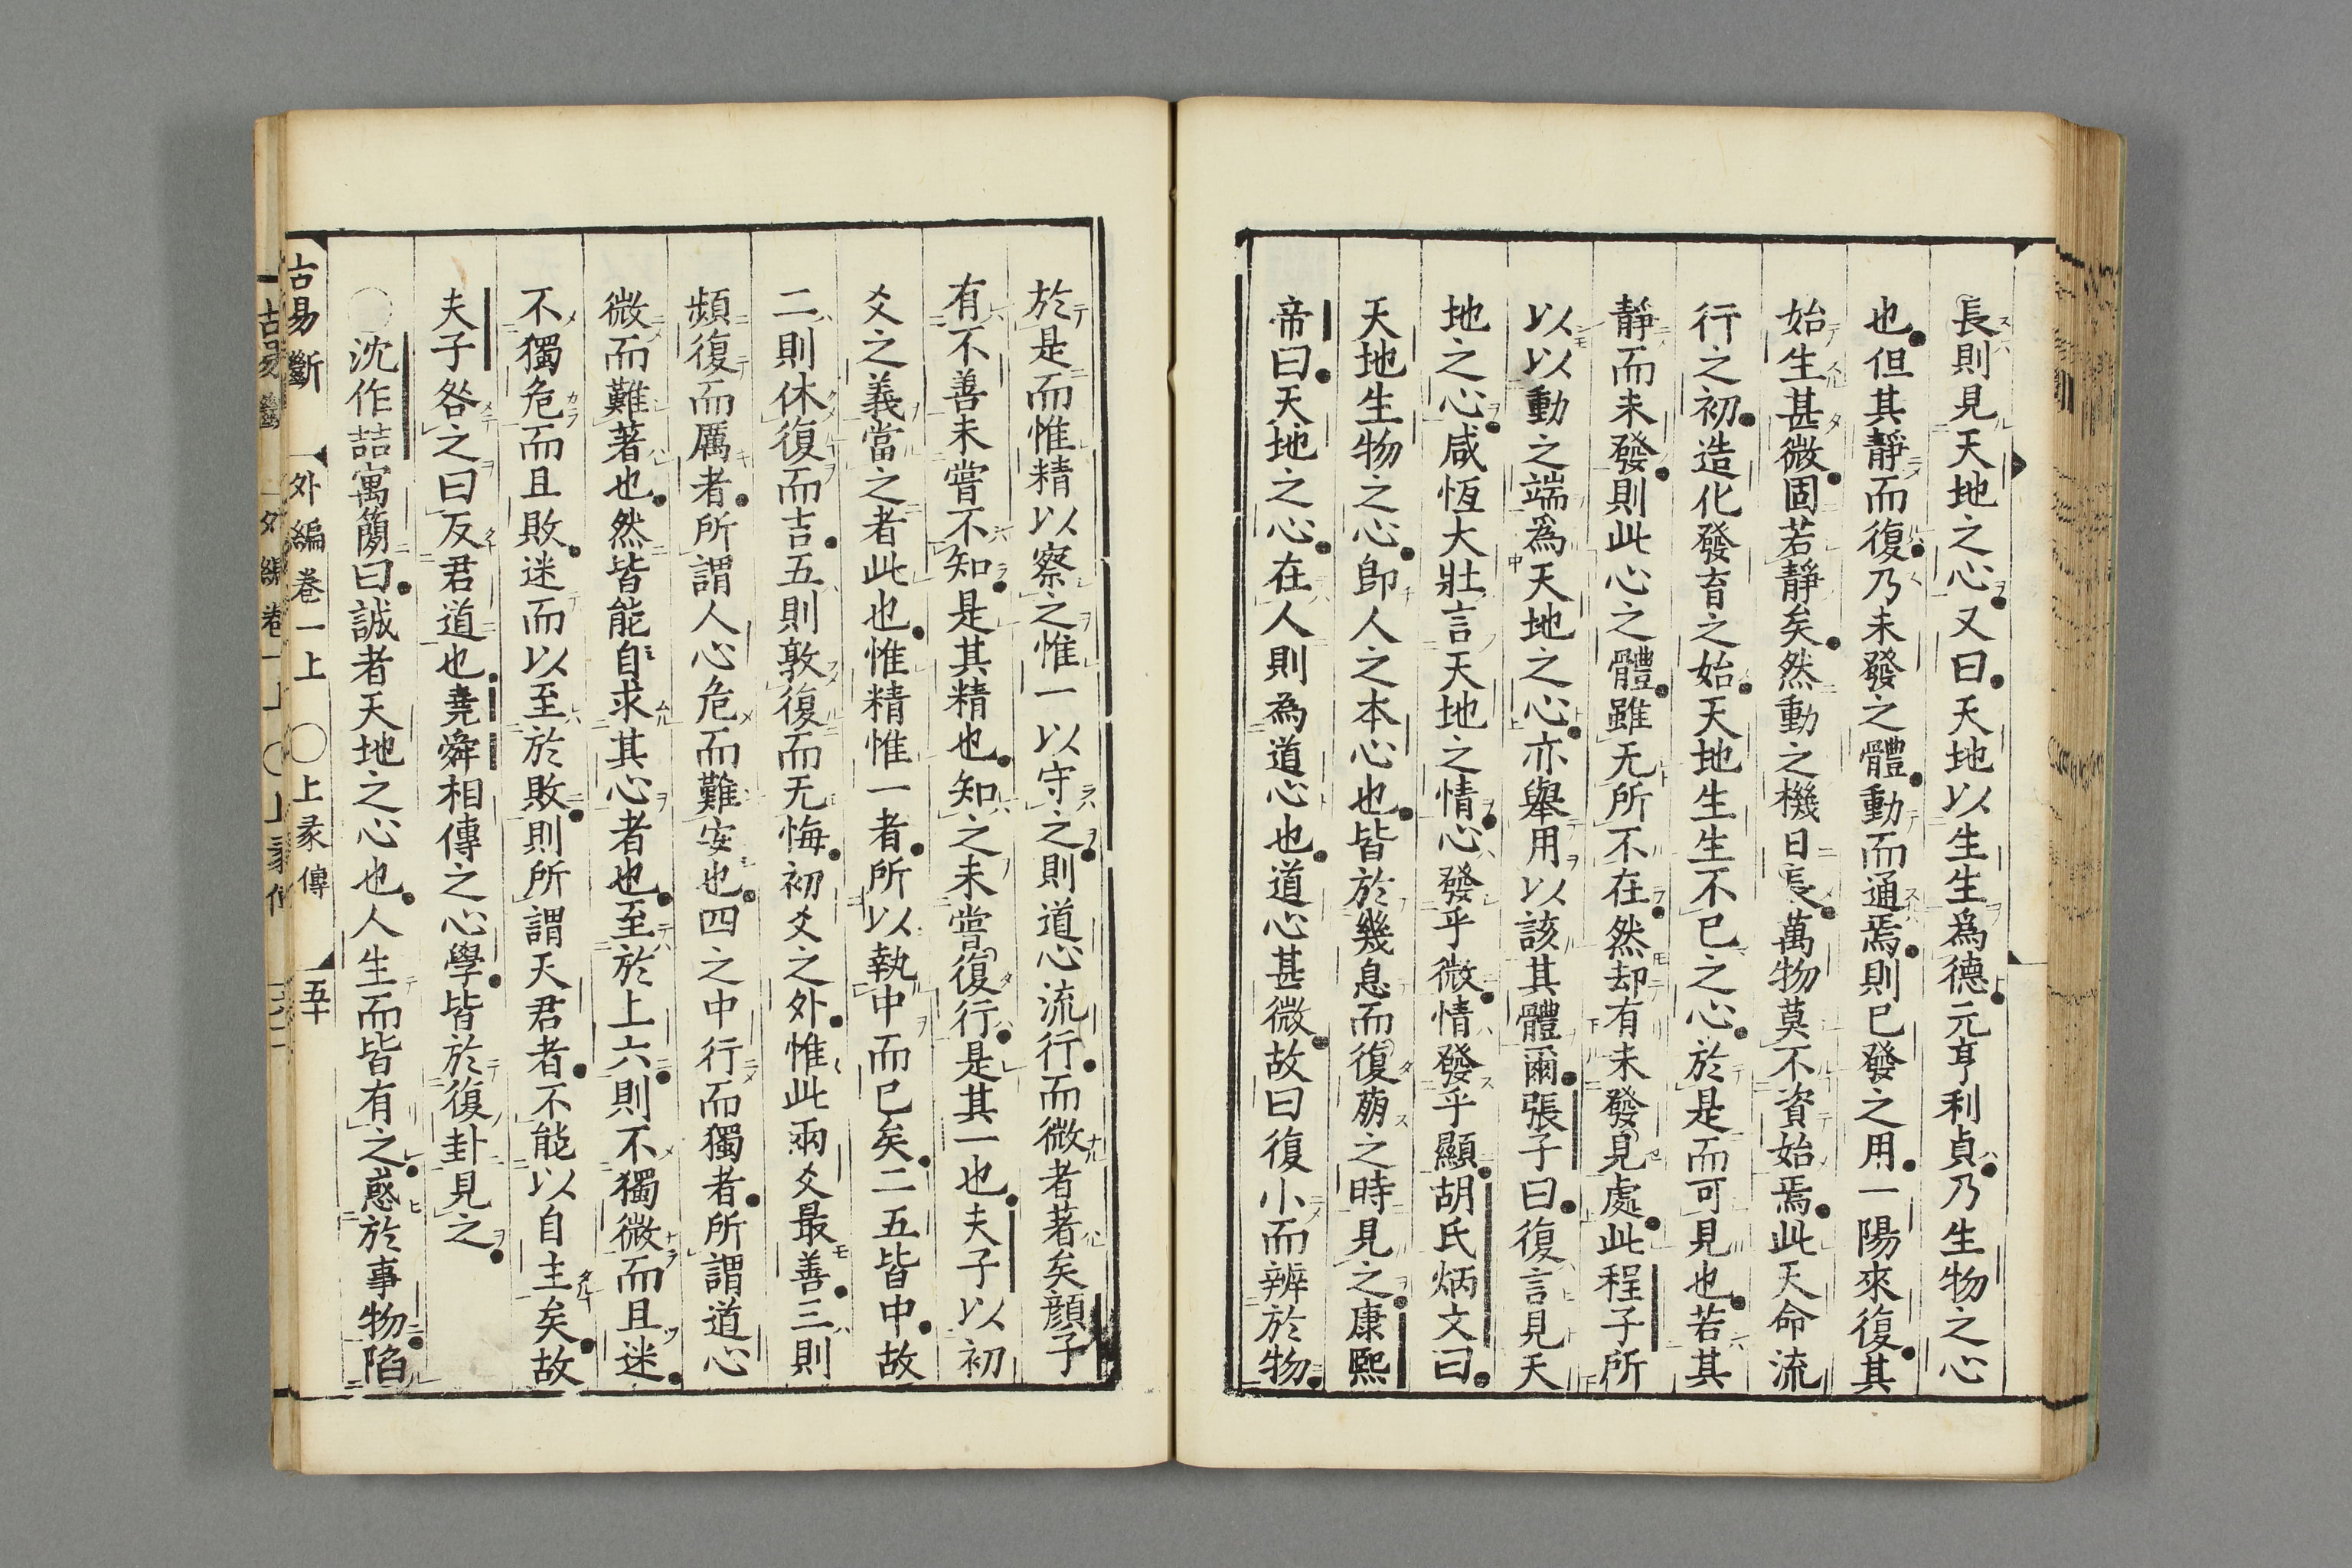 長則見天地之心又曰天地以生生爲德元亨利貞乃生物之心
也但其靜而復乃未發之體動而通焉則已發之用一陽來復其
始生甚微固若靜矣然動之機日長萬物莫不資始焉此天命流
行之初造化發育之始天地生生不已之心於是而可見也若其
靜而未發則此心之體雖无所不在然却有未發見處此程子所
以以動之端爲天地之心亦舉用以該其體爾張子曰復言見天
地之心咸恆大壯言天地之情心發乎微情發乎顯胡氏炳文曰
天地生物之心卽人之本心也皆於幾息而復萠之時見之康熙
帝曰天地之心在人則為道心也道心甚微故曰復小而辨於物
於是而惟精以察之惟一以守之則道心流行而微者著矣顔子
有不善未嘗不知是其精也知之未嘗復行是其一也夫子以初
爻之義當之者此也惟精惟一者所以執中而已矣二五皆中故
二則休復而吉五則敦復而无悔初爻之外惟此兩爻最善三則
頻復而厲者所謂人心危而難安也四之中行而獨者所謂道心
微而難著也然皆能自求其心者也至於上六則不獨微而且迷
不獨危而且敗迷而以至於敗則所謂天君者不能以自主矣故
夫子咎之曰反君道也堯舜相傳之心學皆於復卦見之
○沈作喆寓簡曰誠者天地之心也人生而皆有之惑於事物陷
古易斷　外編卷一上　○上彖傳　五十